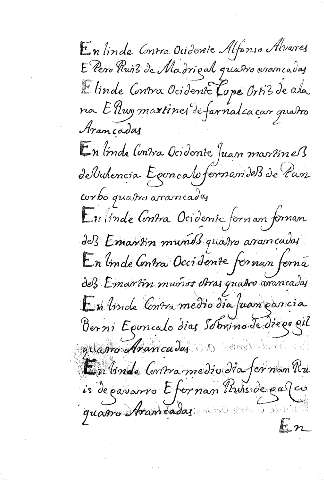 En linde Contra Ocidente Alfonso Alvares
E Pero Ruiz de Madrigal quatro arancadas
E linde Contra Ocidente Lope Ortiz de
E Ruy martines de farnalcacar quatro
Arançadas
En linde Contra Ocidente Juan martineß
de Valencia E goncalo fernandeß de Pan
corbo quatro arrancadas
En linde Contra Ocidente fernan fernan
deß E martin muñoß quatro arancadas
En linde Contra Occidente fernan fernā
deß E martin muños otras quatro arancadas
En linde Contra medio dia Juan garcia
Berni E goncalo dias Sobrino de diego gil
quatro Arancadas
En linde Contra medio dia fernan Ru
is de E fernan Ruis de
quatro Arançadas
En